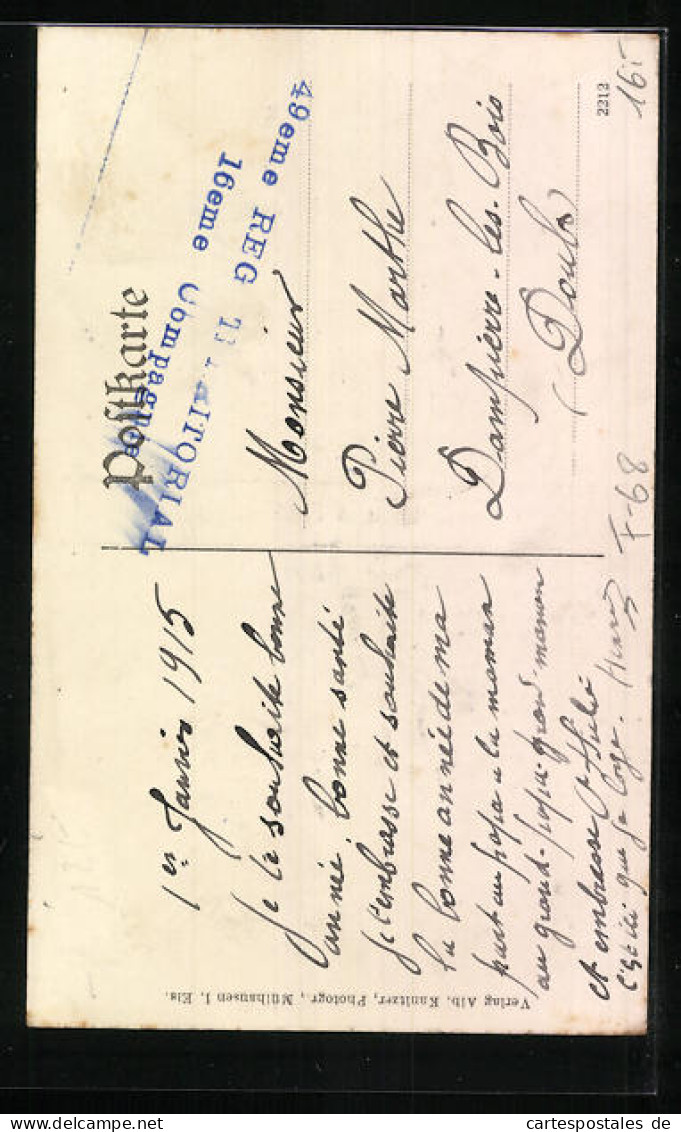 Postkarte
49eme REG TERRITORIAL
16eme Compagnie
1er Janvier 1915
Je te souhaite bonne
année, bonne santé
Je t'embrasse et souhaite
la bonne année de ma
part au papa a la maman
au grand-papa grand-maman
et embrasse
c'est ici que je loge. Henri
Monsieur
Pierre Marthe
Dampierre-les-Bois
(Doubs)
2212
Verlag Alb. Kanitzer, Photogr., Mülhausen i. Els.
16 iT
F-68
www.cartespostales.de
cartespostales.de